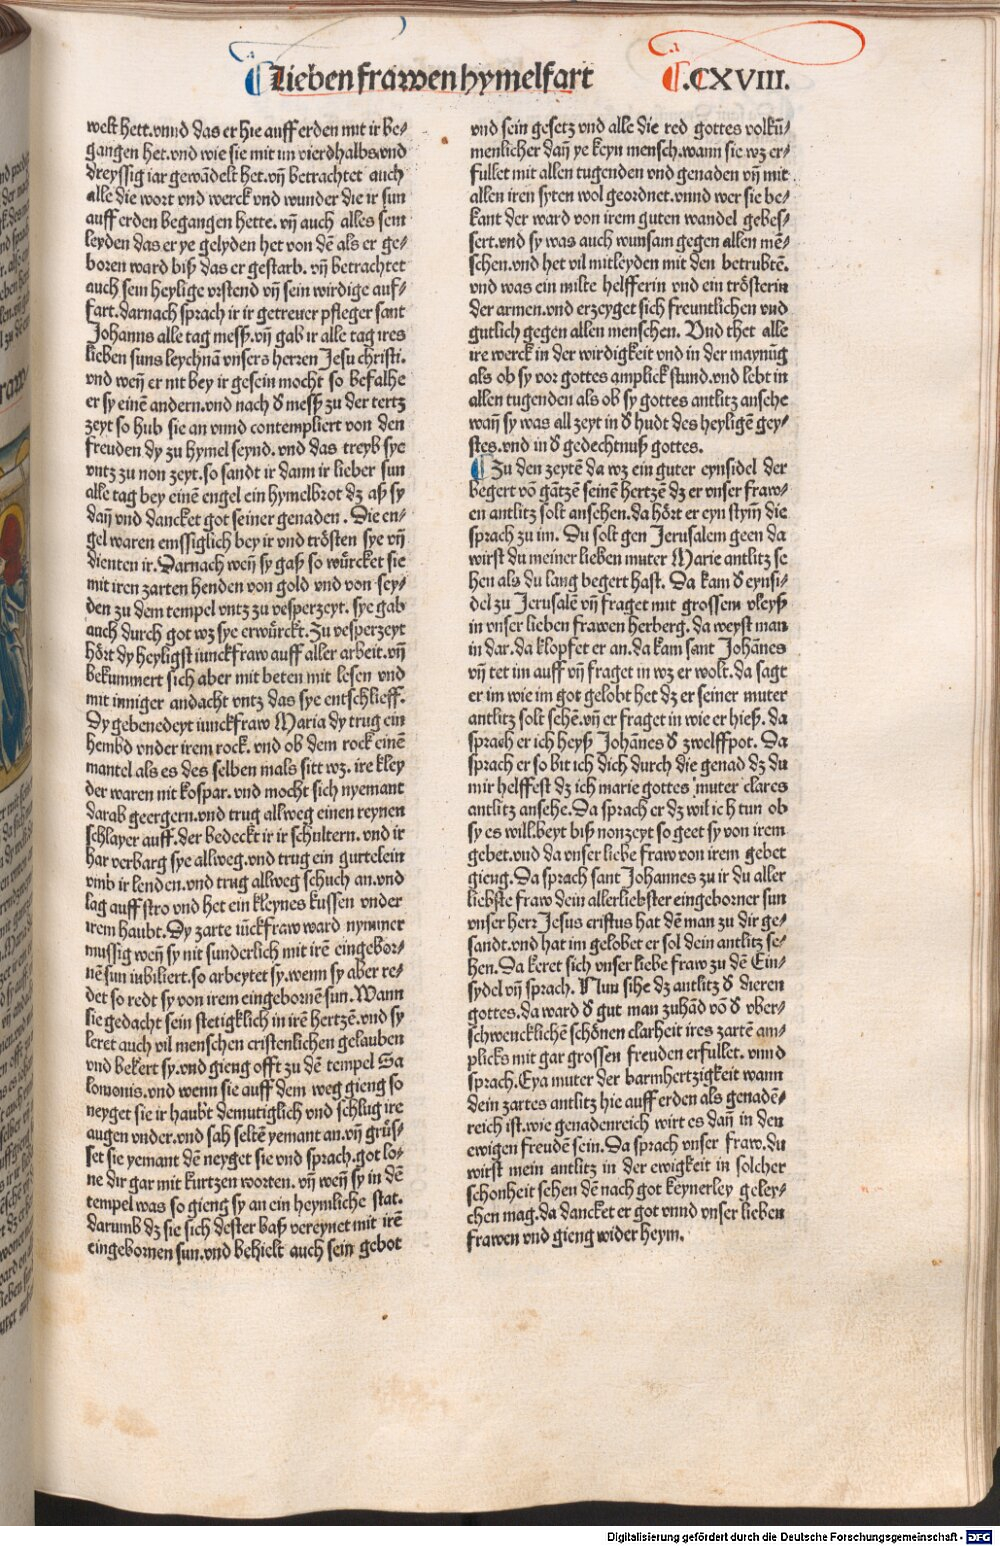 Lieben frawen hymelfart .CXVIII.
welt hett.vnnd das er hie auff erden mit ir be⸗
gangen het.vnd wie sie mit im vierdhalbs.vnd
dreyssig iar gewādelt het.vn̄ betrachtet auch
alle die wort vnd werck vnd wunder die ir sun
auff erden begangen hette. vn̄ auch alles sein
leyden das er ye gelyden het von dē als er ge⸗
boren ward biß das er gestarb. vn̄ betrachtet
auch sein heylige vrstend vn̄ sein wirdige auf⸗
fart.darnach sprach ir ir getreuer pfleger sant
Johanns alle tag meß.vn̄ gab ir alle tag ires
lieben suns leychnā vnsers herren Jesu christi.
vnd wen̄ er nit bey ir gesein mocht so befalhe
er sy einē andern.vnd nach d̕ meß zu der tertz
zeyt so hub sie an vnnd contempliert von den
freuden dy zu hymel seynd. vnd das treyb sye
vntz zu non zeyt.so sandt ir dann ir lieber sun
alle tag bey einē engel ein hymelbrot dz aß sy
dan̄ vnd dancket got seiner genaden . Die en⸗
gel waren emssiglich bey ir vnd trösten sye vn̄
dienten ir.Darnach wen̄ sy gaß so würcket sie
mit iren zarten henden von gold vnd von sey⸗
den zu dem tempel vntz zu vesperzeyt. sye gab
auch durch got wz sye erwürckt.Zu vesperzeyt
hört dy heyligst iunckfraw auff aller arbeit.vn̄
bekummert sich aber mit beten mit lesen vnd
mit inniger andacht vntz das sye entschlieff.
Dy gebenedeyt iunckfraw Maria dy trug ein
hembd vnder irem rock. vnd ob dem rock einē
mantel als es des selben mals sitt wz. ire kley
der waren nit kospar. vnd mocht sich nyemant
darab geergern.vnd trug allweg einen reynen
schlayer auff.der bedeckt ir ir schultern. vnd ir
har verbarg sye allweg.vnd trug ein gurtelein
vmb ir lenden.vnd trug allweg schuch an.vnd
lag auff stro vnd het ein kleynes kussen vnder
irem haubt.Dy zarte iūckfraw ward nymmer
mussig wen̄ sy nit sunderlich mit irē eingebor⸗
nē sun iubiliert.so arbeytet sy.wenn sy aber re⸗
det so redt sy von irem eingebornē sun.Wann
sie gedacht sein stetigklich in irē hertzē.vnd sy
leret auch vil menschen cristenlichen gelauben
vnd bekert sy.vnd gieng offt zu dē tempel Sa
lomonis.vnd wenn sie auff dem weg gieng so
neyget sie ir haubt demutiglich vnd schlug ire
augen vnder.vnd sah seltē yemant an.vn̄ grüs⸗
set sie yemant dē neyget sie vnd sprach.got lo⸗
ne dir gar mit kurtzen worten. vn̄ wen̄ sy in dē
tempel was so gieng sy an ein heymliche stat.
darumb dz sie sich dester baß vereynet mit irē
eingebornen sun.vnd behielt auch sein gebot
vnd sein gesetz vnd alle die red gottes volkū⸗
menlicher dan̄ ye keyn mensch.wann sie wz er⸗
füllet mit allen tugenden vnd genaden vn̄ mit
allen iren syten wol geordnet.vnnd wer sie be⸗
kant der ward von irem guten wandel gebes⸗
sert.vnd sy was auch wunsam gegen allen mē⸗
schen.vnd het vil mitleyden mit den betrubtē.
vnd was ein milte helfferin vnd ein trösterin
der armen.vnd erzeyget sich freuntlichen vnd
gutlich gegen allen menschen. Vnd thet alle
ire werck in der wirdigkeit vnd in der maynūg
als ob sy vor gottes amplick stund.vnd lebt in
allen tugenden als ob sy gottes antlitz ansehe
wan̄ sy was all zeyt in d̕ hudt des heyligē gey⸗
stes.vnd in d̕ gedechtnuß gottes.
Zu den zeytē da wz ein guter eynsidel der
begert vō gātzē seinē hertzē dz er vnser fraw⸗
en antlitz solt ansehen.da hört er eyn stym̄ die
sprach zu im. Du solt gen Jerusalem geen da
wirst du meiner lieben muter Marie antlitz se
hen als du lang begert hast. Da kam d̕ eynsi⸗
del zu Jerusalē vn̄ fraget mit grossem vleyß
in vnser lieben frawen herberg. da weyst man
in dar.da klopfet er an.da kam sant Johānes
vn̄ tet im auff vn̄ fraget in wz er wolt.da sagt
er im wie im got gelobt het dz er seiner muter
antlitz solt sehē.vn̄ er fraget in wie er hieß. da
sprach er ich heyß Johānes d̕ zwelffpot. Da
sprach er so bit ich dich durch die genad dz du
mir helffest dz ich marie gottes muter clares
antlitz ansehe.Da sprach er dz wil ich tun ob
sy es will.beyt biß nonzeyt so geet sy von irem
gebet.vnd da vnser liebe fraw von irem gebet
gieng.Da sprach sant Johannes zu ir du aller
liebste fraw dein allerliebster eingeborner sun
vnser herr Jesus cristus hat dē man zu dir ge⸗
sandt.vnd hat im gelobet er sol dein antlitz se⸗
hen.Da keret sich vnser liebe fraw zu dē Ein⸗
sydel vn̄ sprach. Nun sihe dz antlitz d̕ dieren
gottes.da ward d̕ gut man zuhād vō d̕ vber⸗
schwencklichē schönen clarheit ires zartē am⸗
plicks mit gar grossen freuden erfullet. vnnd
sprach.Eya muter der barmhertzigkeit wann
dein zartes antlitz hie auff erden als genadē⸗
reich ist.wie genadenreich wirt es dan̄ in den
ewigen freudē sein.Da sprach vnser fraw.du
wirst mein antlitz in der ewigkeit in solcher
schonheit sehen dē nach got keynerley geley⸗
chen mag.da dancket er got vnnd vnser lieben
frawen vnd gieng wider heym.
Digitalisierung gefördert durch die Deutsche Forschungsgemeinschaft - DFG